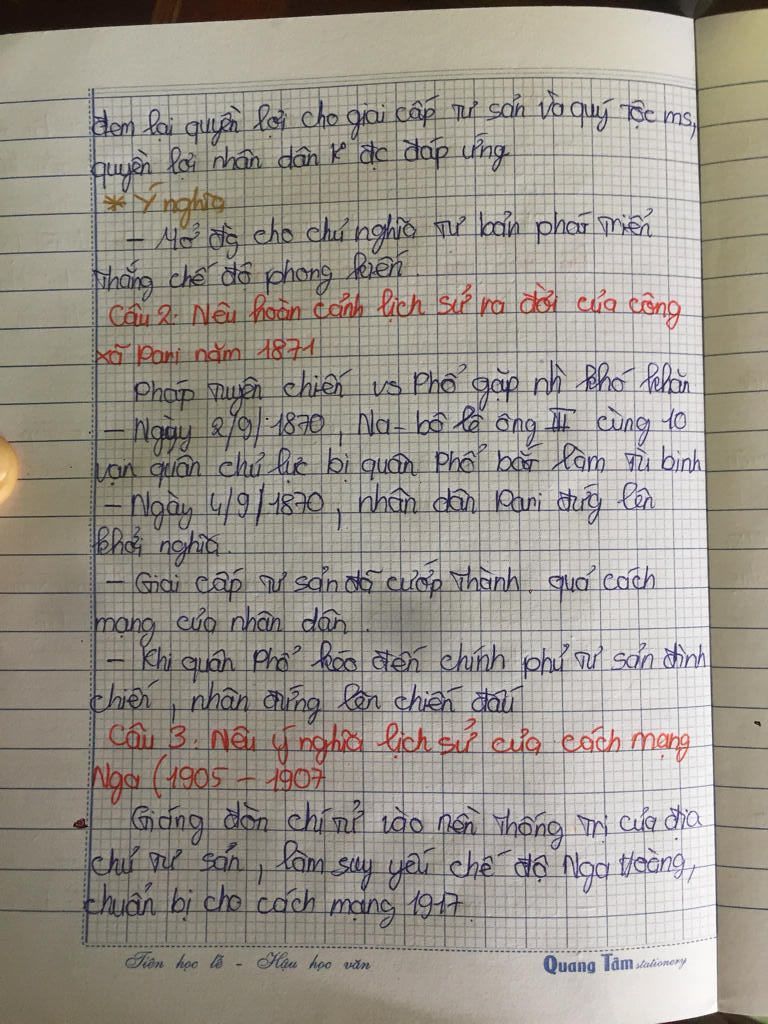 đem lại quyền lợi cho giai cấp tư sản và quý tộc ms,
quyền lợi nhân dân k° đc đáp ứng
* Ý nghĩa
- Mở đg cho chủ nghĩa tư bản phát triển
thắng chế độ phong kiến.
Câu 2. Nêu hoàn cảnh lịch sử ra đời của công
xã Pari năm 1871
Pháp tuyên chiến vs Phổ gặp nh` khó khăn
- Ngày 2/9/1870, Na-bô lê ông III cùng 10
vạn quân chủ lực bị quân Phổ bắt làm tù binh
- Ngày 4/9/1870, nhân dân Pari đứg lên
khởi nghĩa.
- Giai cấp tư sản đã cướp thành. quả cách
mạng của nhân dân.
- Khi quân Phổ kéo đến chính phủ tư sản đình
chiến, nhân đứng lên chiến đấu
Câu 3. Nêu ý nghĩa lịch sử của cách mạng
Nga (1905 - 1907
Giáng đòn chí tử vào nền thống trị của địa
chủ tư sản, làm suy yếu chế độ Nga Hoàng,
chuẩn bị cho cách mạng 1917.
Tiên học lễ - Hậu học văn Quang Tâm stationery